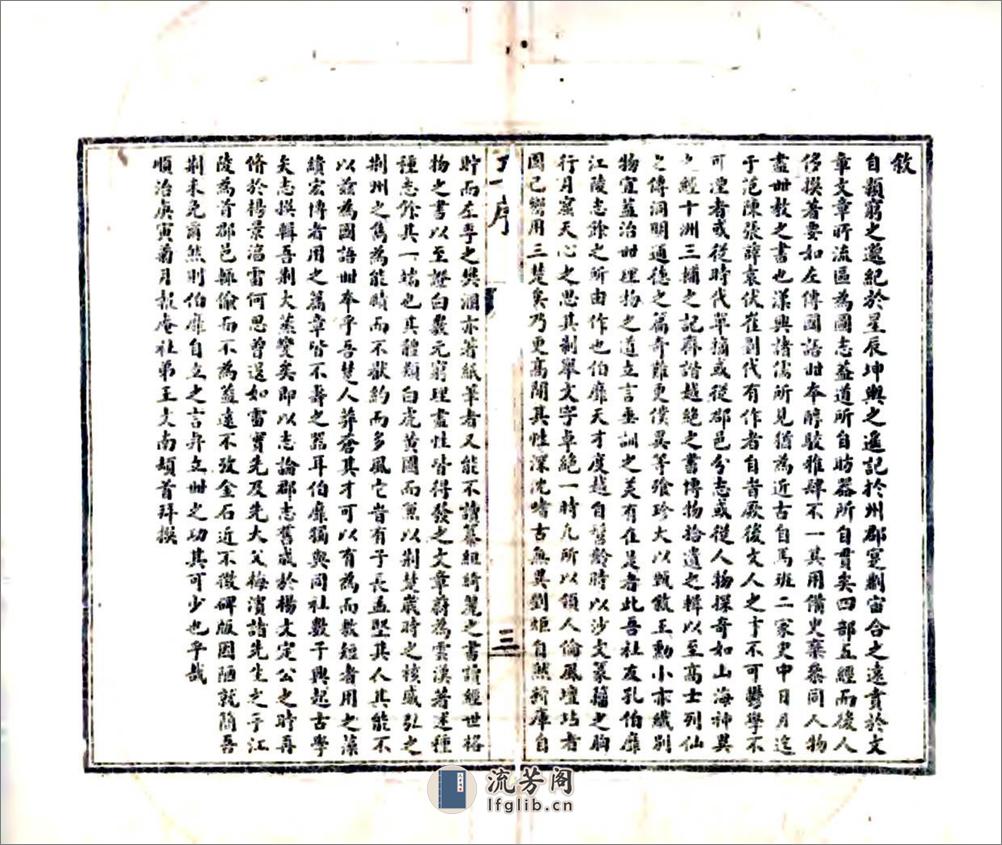 敘
自顥窮之邈紀於星辰坤輿之遙記於州郡寔剬宙合之遠責於文
章文章所流區為國志蓋道所自昉器所自貫矣四部五經而後人
侈撰著要如左傳國語丗本醇駮雅肆不一其用備史棄參同人物
盡丗教之書也漢興諸儒所見猶為近古自馬班二家史中日月迄
于范陳張薛袁伏崔劉代有作者自昔厥後文人之才不可鬱學不
可湮者或從時代單摘或從郡邑分志或從人物探奇如山海神異
之經十洲三輔之記齊諧越絕之書博物拾遺之輯以至高士列仙
之傳洞明通德之篇奇雖更僕異等飧珍大以甄敘王勳小亦織別
物宜蓋治丗理物之道立言垂訓之美有在是者此吾社友孔伯靡
江陵志餘之所由作也伯靡天才度越自髫齡時以沙文篆籀之胸
行月窟天心之思其制舉文字卓絕一時凡所以領人倫風壇坫者
固已嚮用三楚矣乃更高閒其性深沈嗜古無異劉炬自然新庫自
序
三
貯而左季之奘溷亦著紙筆者又能不讀纂組綺麗之書讀經世格
物之書以至證白冀元窮理盡性皆得發之文章蔚為雲漢著述種
種志餘其一端也其體類白虎黃國而黨以荊楚歲時之核盛弘之
荊州之雋為能賾而不猒約而多風它昔有子長孟堅其人其能不
以諭為國語丗本乎吾楚人莽蒼其才可以有為而教短者用之藻
繢宏傳者用之篇章皆不壽之器耳伯靡獨與同社數子興起古學
矣志撰輯吾荊大蒸變矣即以志論郡志舊成於楊文定公之時再
脩於楊景淐雷何思曾還如雷實先及先大父梅濱諸先生之手江
陵為首郡邑輒偷而不為蓋遠不攷金石近不徵碑版因陋就簡吾
荊未免爾然則伯靡自立之言弁立丗之功其可少也乎哉
順治庚寅菊月報庵社弟王文南頓首拜撰
流芳阁
lfglib.cn